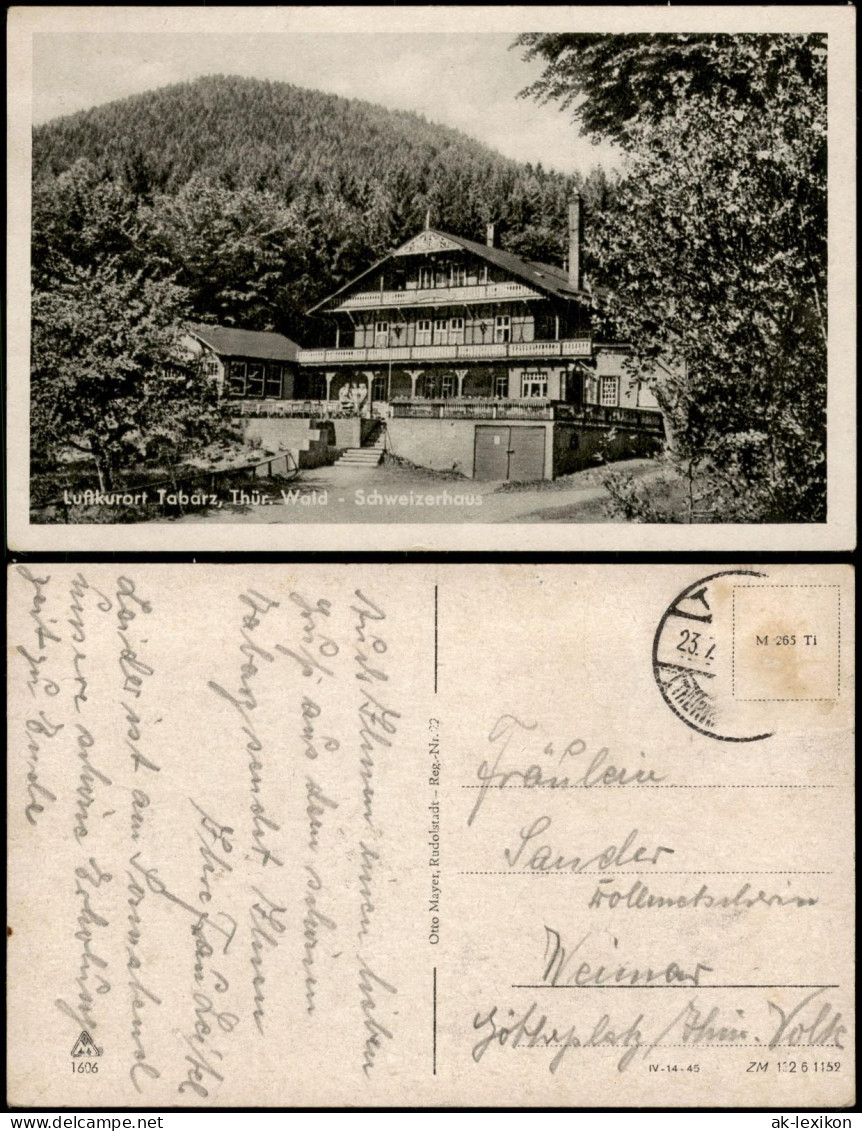 Luftkurort Tabarz, Thür. Wald - Schweizerhaus
Auch Ihnen einen lieben
Gruß aus dem schönen
Tabarz sendet Ihnen
Ihre Frau
Leider ist am Sonnabend
unsere schöne Erholungs
zeit zu Ende
Otto Mayer, Rudolstadt – Reg.-Nr. 22
1606
23.7.
M 265 Ti
Fräulein
Sander
Dollmetscherin
Weimar
Thür. Volk
IV-14-45
ZM 132 6 1152
ak-lexikon